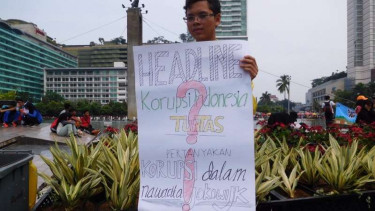 HEADLINE
Korupsi Indonesia
TUNTAS
PERTANYAKAN
KORUPSI dalam
naungan